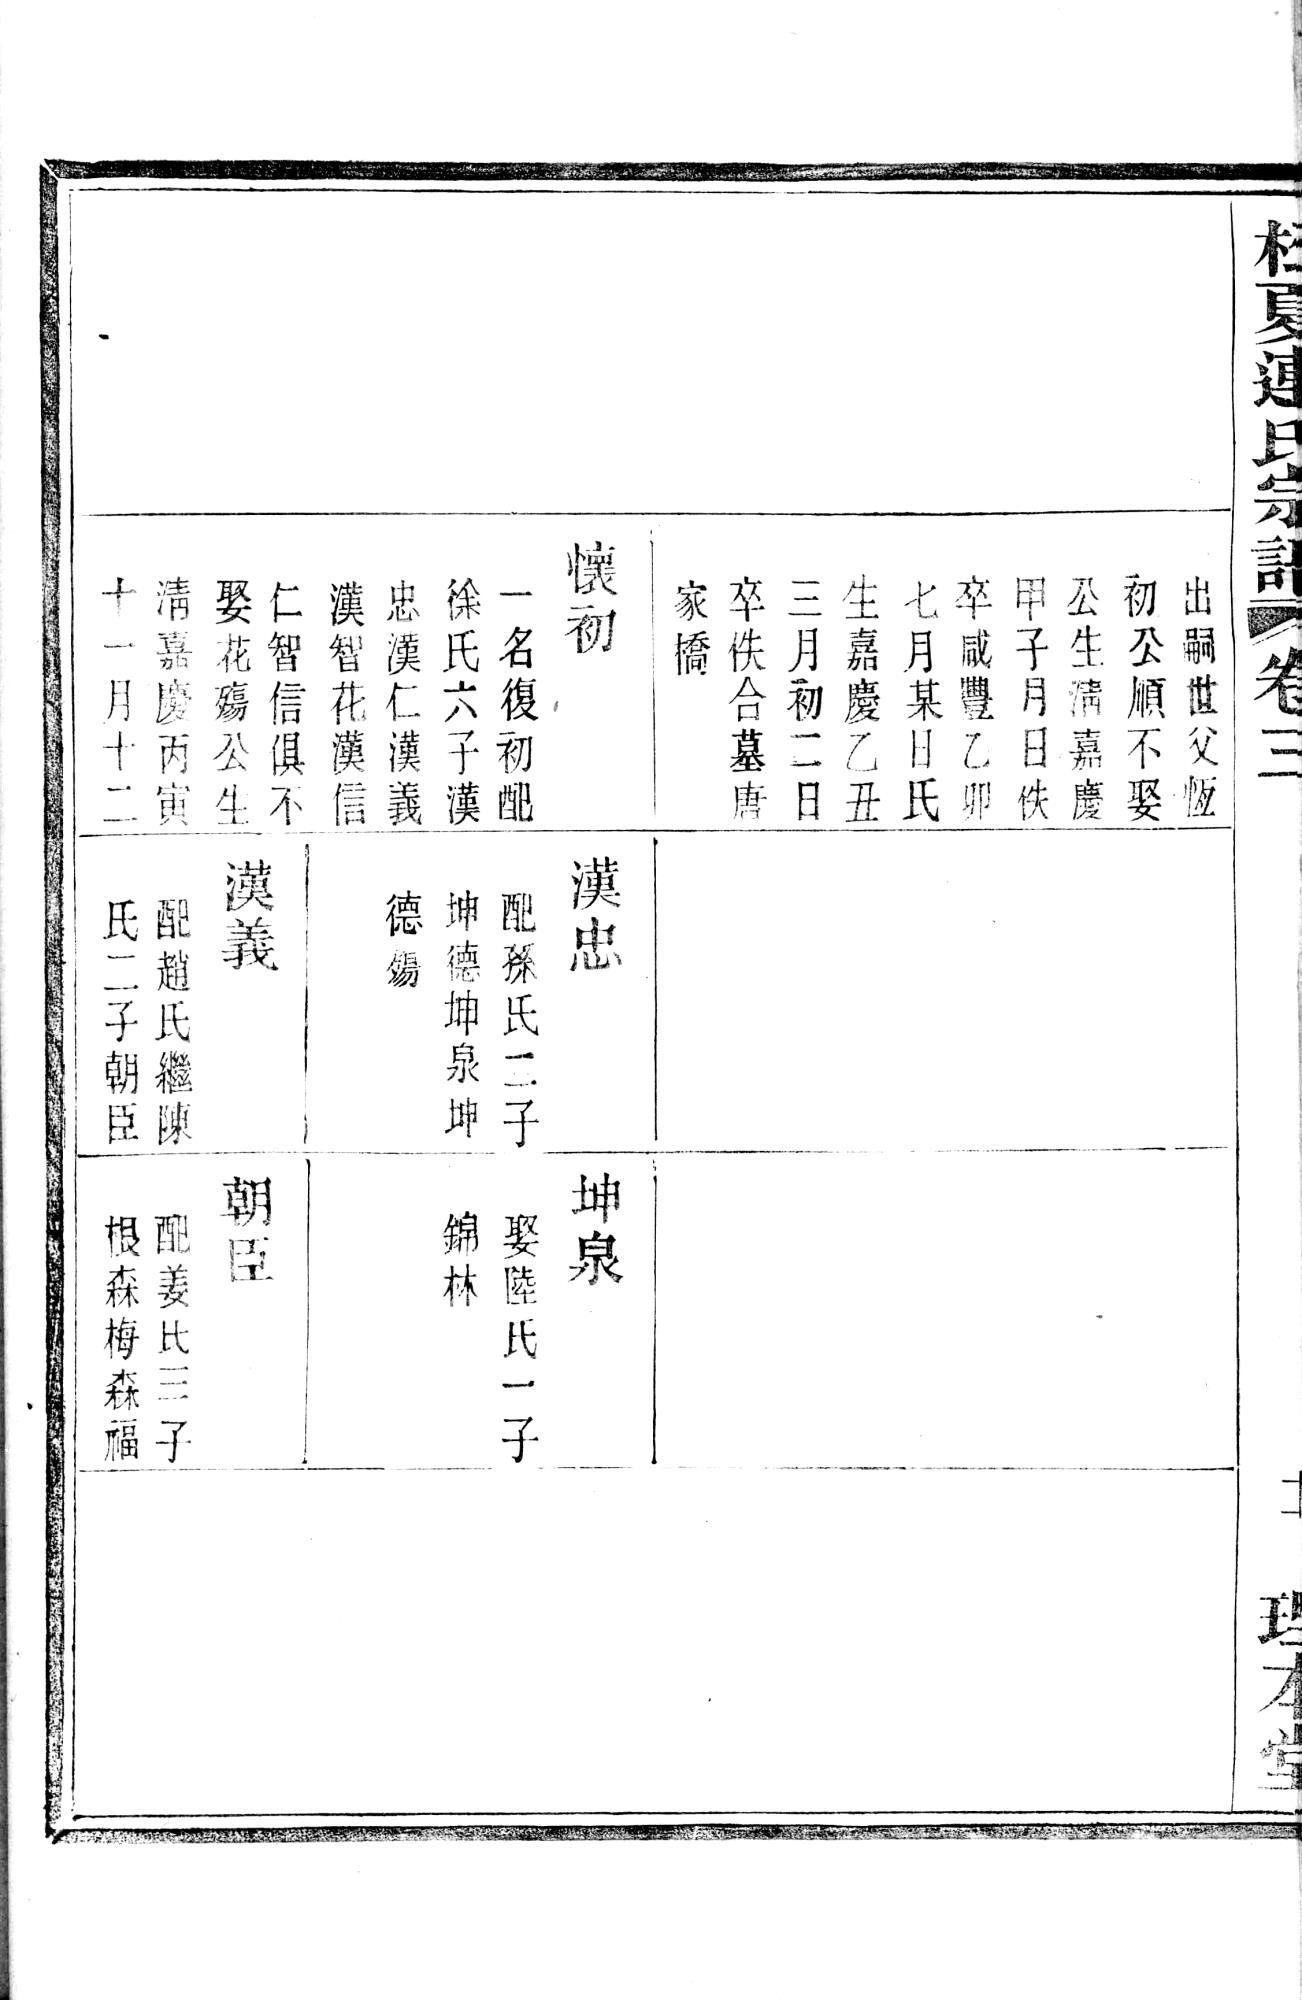 桂夏連氏宗譜
卷三
理本堂
出嗣世父恆
初公順不娶
公生清嘉慶
甲子月日佚
卒咸豐乙卯
七月某日氏
生嘉慶乙丑
三月初二日
卒佚合墓唐
家橋
懷初
一名復初配
徐氏六子漢
忠漢仁漢義
漢智花漢信
仁智信俱不
娶花殤公生
清嘉慶丙寅
十一月十二
漢忠
配孫氏二子
坤德坤泉坤
德殤
漢義
配趙氏繼陳
氏二子朝臣
坤泉
娶陸氏一子
錦林
朝臣
配姜氏三子
根森梅森福